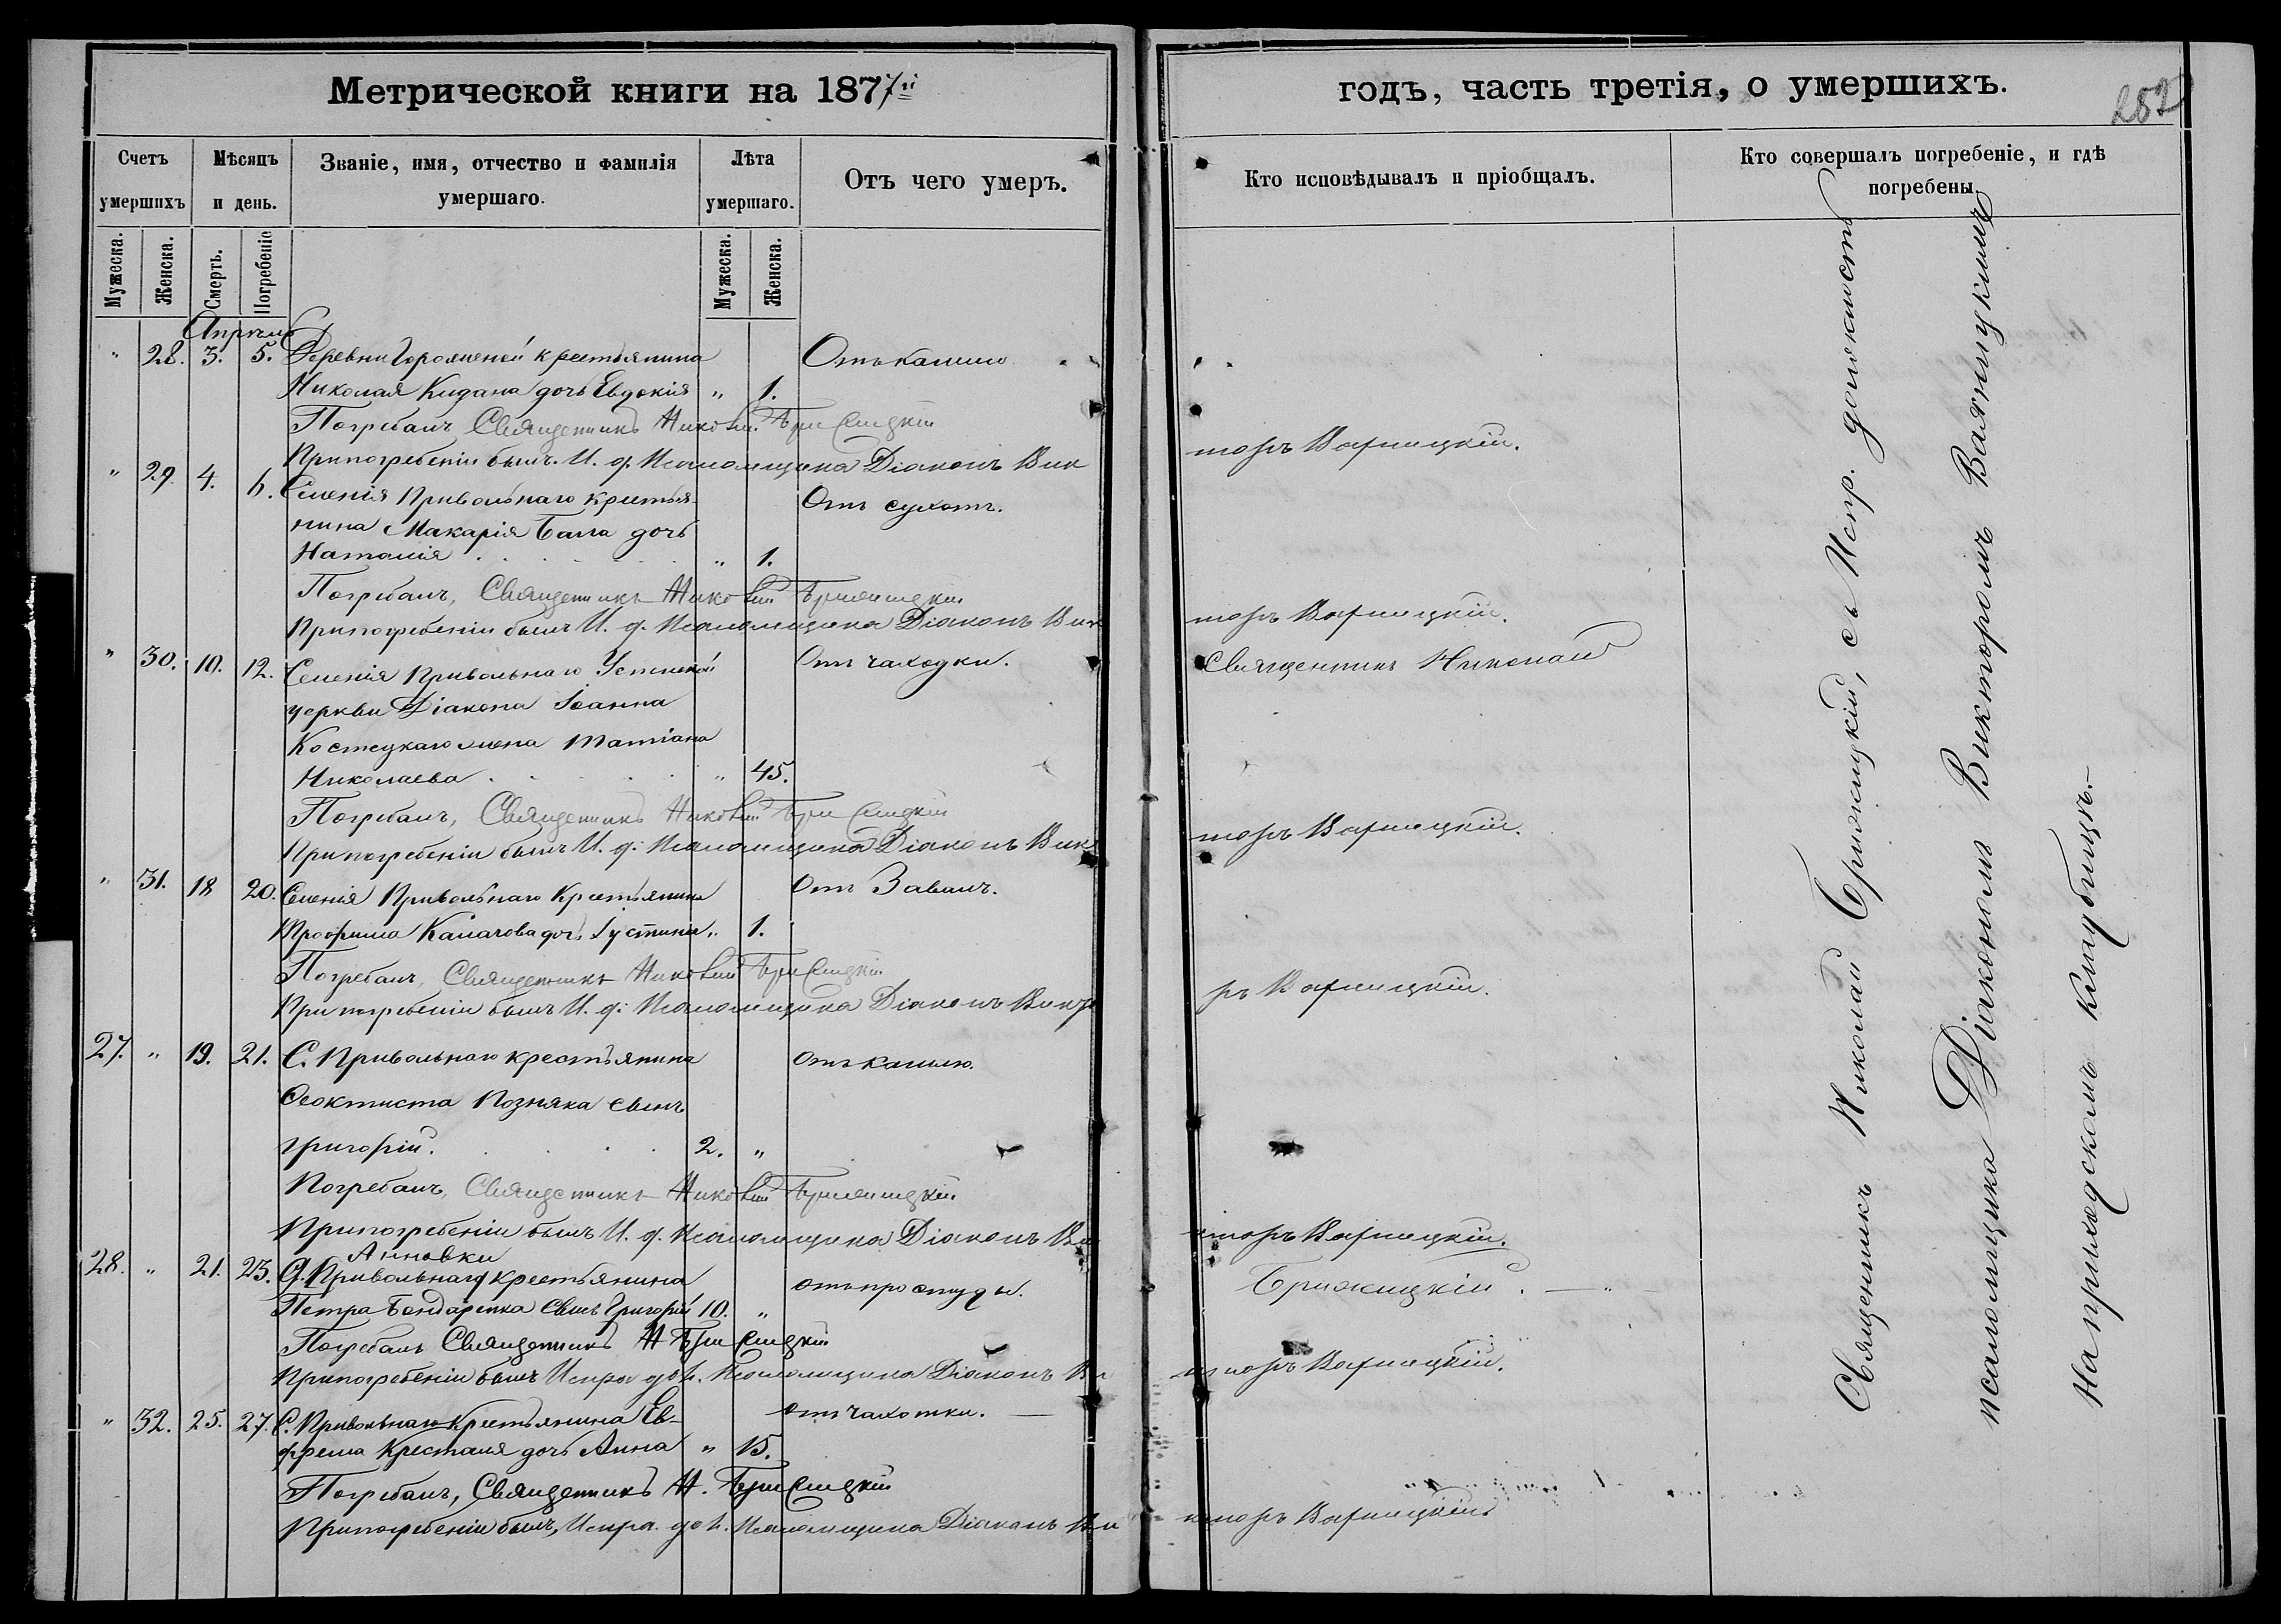 Метрической книги на 1877й
годъ, часть третія, о умершихъ.
252
Счетъ умершихъ
Мѣсяцъ и день.
Званіе, имя, отчество и фамилія умершаго.
Лѣта умершаго.
Отъ чего умеръ.
Кто исповѣдывалъ и пріобщалъ.
Кто совершалъ погребеніе, и гдѣ погребены.
Мужеска.
Женска.
Смерть.
Погребеніе
Мужеска.
Женска.
Апрѣль
" 28. 3. 5. Деревни крестьянина Отъ кашлю
Николая Кидана дочь Евдокія " 1.
Погребалъ Священникъ Николай Бржицкій
При погребеніи былъ И. д. Псаломщика Діаконъ Вик
торъ Варницкій.
" 29. 4. 6. Селенія Привольнаго крестья- Отъ сухотъ.
нина Макарія Бала дочь
Наталія " 1.
Погребалъ, Священникъ Николай Бржицкій
При погребеніи былъ И. д. Псаломщика Діаконъ Вик
торъ Варницкій.
" 30. 10. 12. Селенія Привольнаго Успенской Отъ чаходки. Священникъ Николай
церкви Діакона Іоанна
Костецкаго жена Татіана
Николаева " 45.
Погребалъ, Священникъ Николай Бржицкій
При погребеніи былъ И. д. Псаломщика Діаконъ Вик
торъ Варницкій.
" 31. 18 20. Селенія Привольнаго Крестьянина Отъ Завалъ.
Трофима Калачова дочь Іустина " 1.
Погребалъ, Священникъ Николай Бржицкій
При погребеніи былъ И. д. Псаломщика Діаконъ Викто
ръ Варницкій.
27. " 19. 21. С. Привольнаго крестьянина Отъ кашлю.
Феоктиста Позняка сынъ
Григорій. 2. "
Погребалъ, Священникъ Николай Бржицкій
При погребеніи былъ И. д. Псаломщика Діаконъ Ви
кторъ Варницкій.
Анновки
28. " 21. 23. Привольнаго крестьянина отъ простуды. Бржицкій. — " —
Петра Бондаренка сынъ Григорій 10. "
Погребалъ Священникъ Н Бржицкій
При погребеніи былъ Испра дол. Псаломщика Діаконъ Ви
кторъ Варницкій.
" 32. 25. 27. С. Привольнаго Крестьянина Ев- отъ чахотки. —
фрема дочь Анна " 15.
Погребалъ, Священникъ Н. Бржицкій
При погребеніи былъ, Испра. дол. Псаломщика Діаконъ Ви
кторъ Варницкій
Священникъ Николай Бржицкій, съ Испр. должность
псаломщика Діакономъ Викторомъ Варницкимъ
На приходскомъ кладбищѣ.—